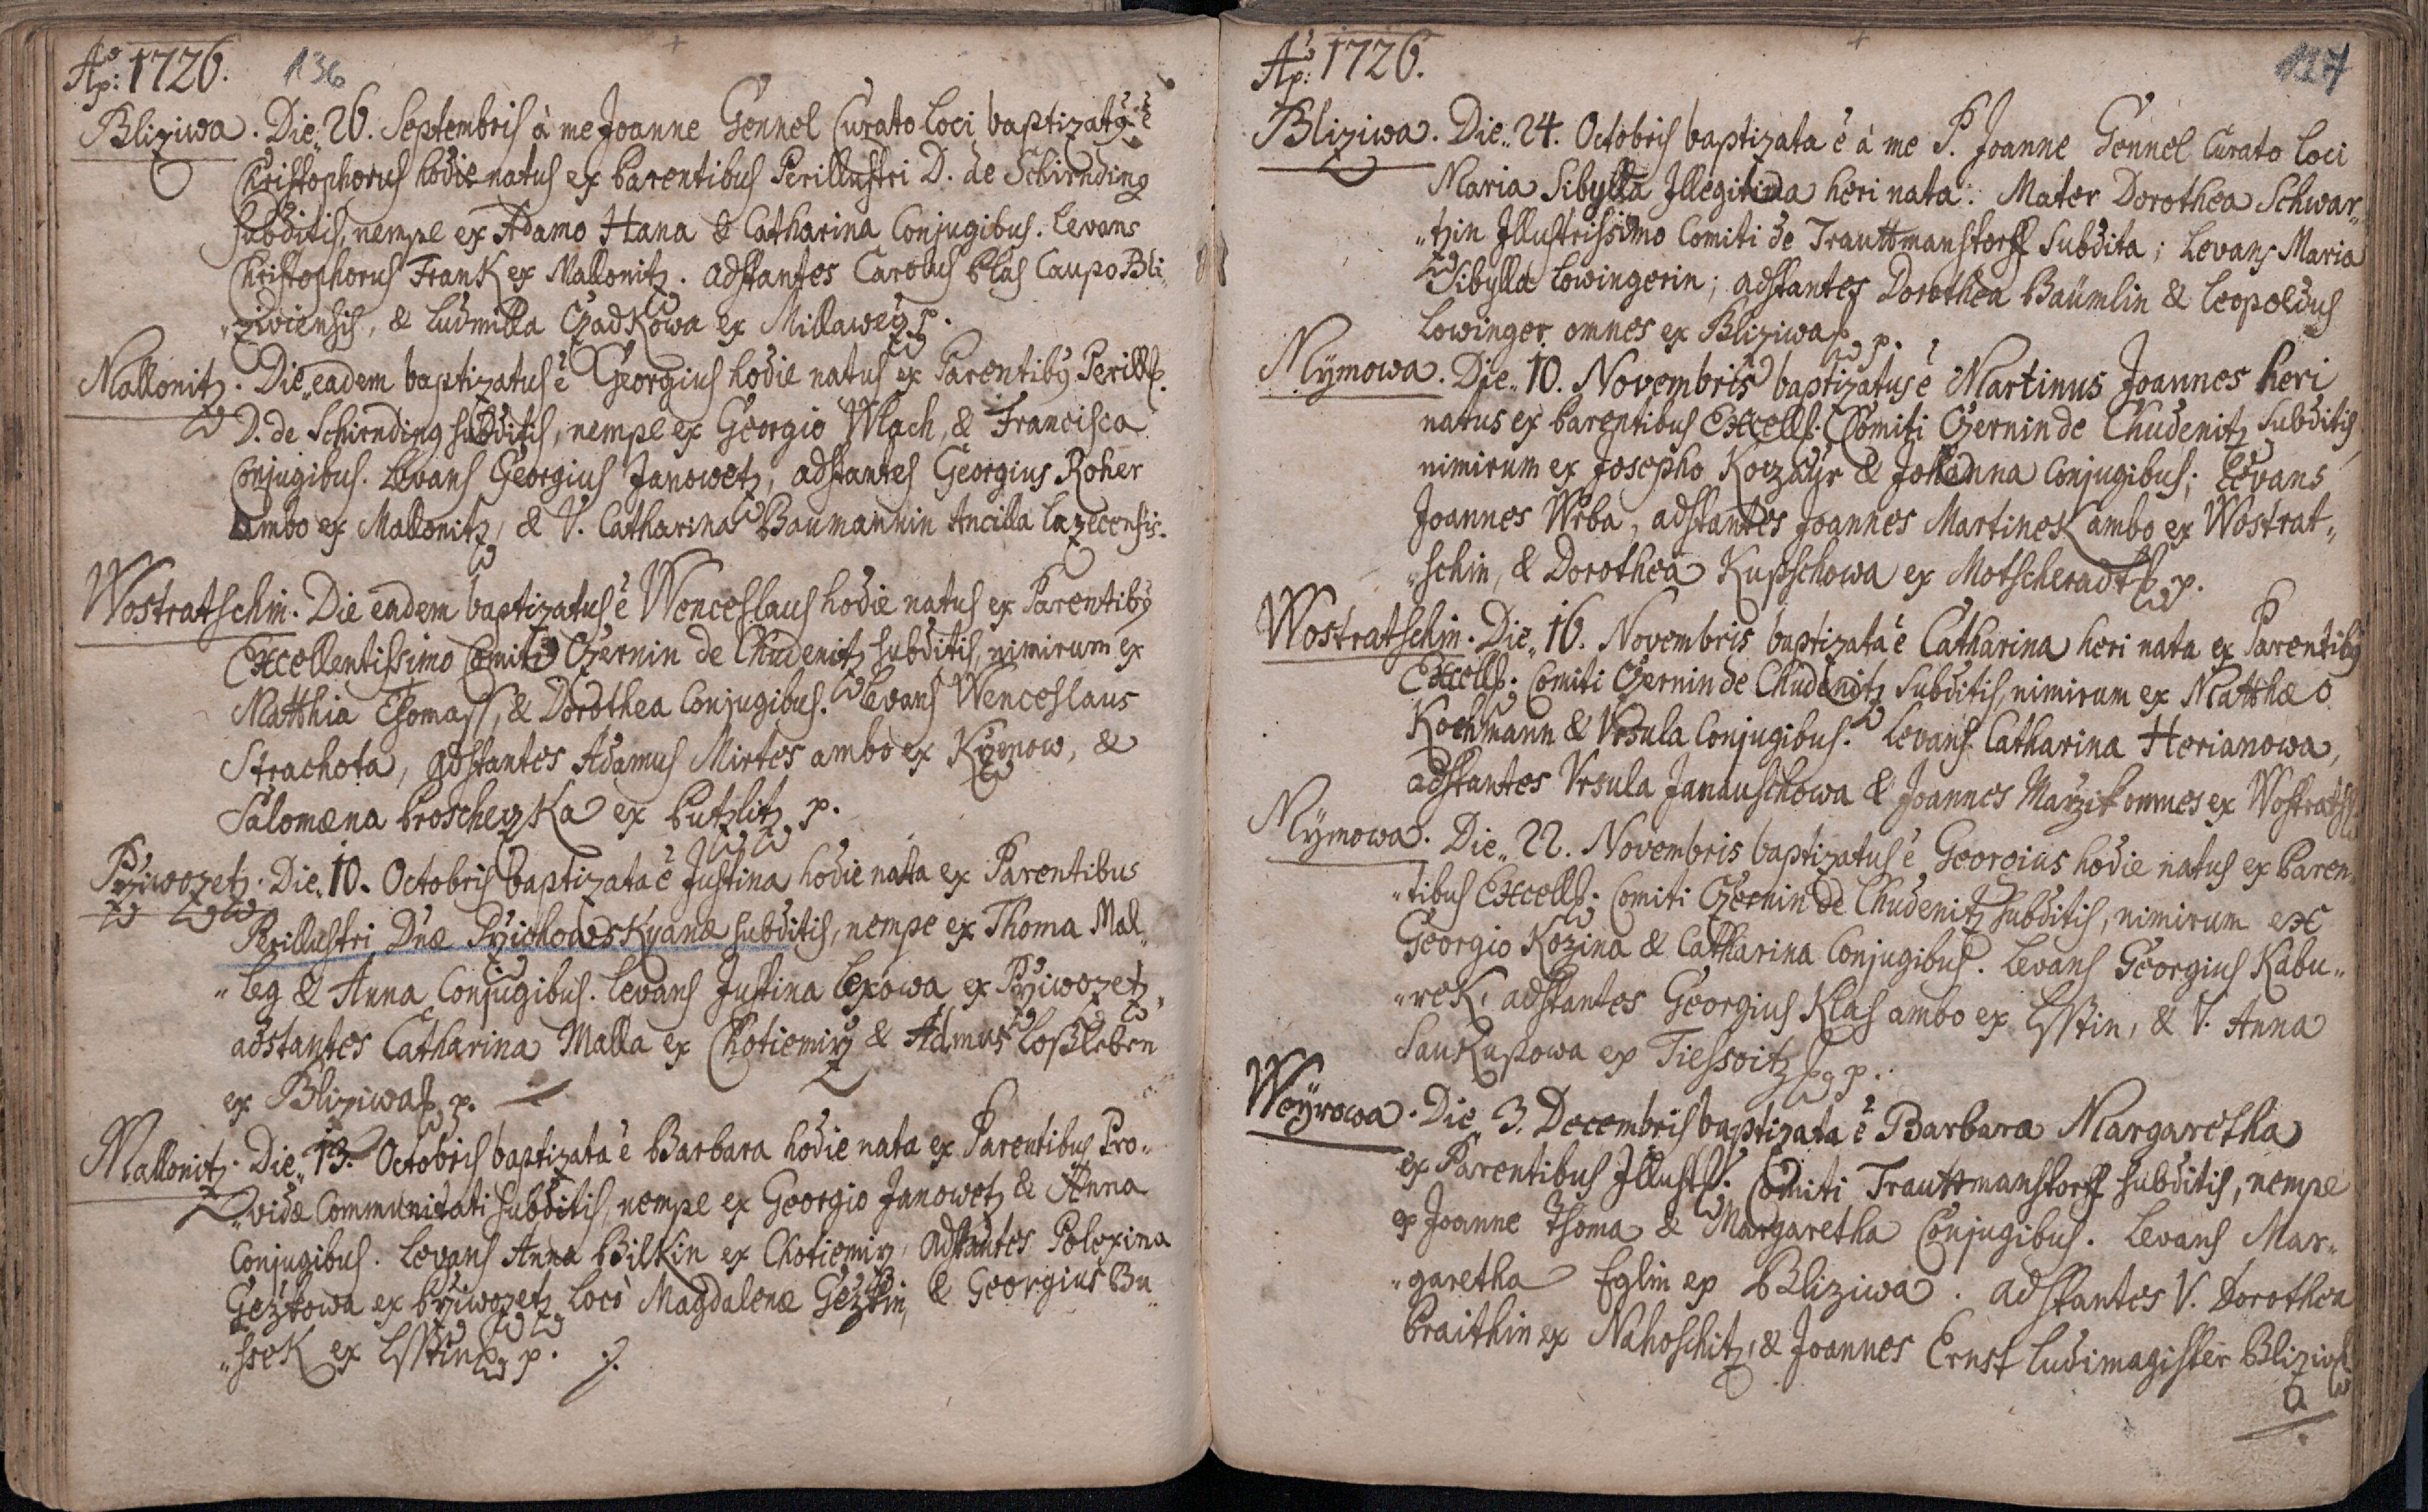 Ao: 1726. 136
Bliziwa. Die 26. Septembris à me Joanne Gennel Curato Loci baptizatus ē
Christophorus hodie natus ex Parentibus Perillustri D. de Schirnding
subditis, nempe ex Adamo Hana & Catharina Conjugibus. Levans
Christophorus Frank ex Mallonitz. adstantes Carolus Blas Caupo Bli„
„ziviensis, & Ludmilla Czadkowa ex Millawetz p.
Mallonitz. Die eadem baptizatus ē Georgius hodie natus ex Parentibus Perill.
D. de Schirnding subditis, nempe ex Georgio Wlach, & Francisca
Conjugibus. Levans Georgius Janowetz, adstantes Georgius Roher
ambo ex Mallonitz, & V. Catharina Baumannin Ancilla Lazecensis.
Wostratschin. Die eadem baptizatus ē Wenceslaus hodie natus ex Parentibus
Excellentissimo Comiti Czernin de Chudenitz subditis, nimirum ex
Matthia Thomass, & Dorothea Conjugibus. Levans Wenceslaus
Strachota, adstantes Adamus Mirtes ambo ex Kymow, &
Salomæna ex Putzlitz p.
Przivozetz. Die 10. Octobris baptizata ē Justina hodie nata ex Parentibus
Perillustri Dnæ subditis, nempe ex Thoma Mal„
„leg & Anna Conjugibus. Levans Justina Lexowa ex Przivozetz,
adstantes Catharina Malla ex Chotiemirz & Admus Loßleben
ex Bliziwa p.
Mallonitz. Die 13. Octobris baptizata ē Barbara hodie nata ex Parentibus Pro„
„vidæ Communitati subditis, nempe ex Georgio Janowetz & Anna
Conjugibus. Levans Anna Bilkin ex Chotiemirz, adstantes Polexina
ex Przivozetz loco Magdalenæ & Georgius Bu„
„ssek ex Lsstin p.
Ao: 1726. 137
Bliziwa. Die 24. Octobris baptizata ē à me P. Joanne Gennel Curato Loci
Maria Sibylla Illegitima heri nata: Mater Dorothea Schwar„
„tzin Illustrissimo Comiti de Trauttmanstorff Subdita; Levans Maria
Sibylla Lowingerin; adstantes Dorothea Baümlin & Leopoldus
Lowinger omnes ex Bliziwa p.
Nÿmowa. Die 10. Novembris baptizatus ē Martinus Joannes heri
natus ex Parentibus Excells. Comiti Czernin de Chudenitz subditis,
nimirum ex Josepho & Johanna Conjugibus; Levans
Joannes Wrba, adstantes Joannes Martinek ambo ex Wostrat„
„schin, & Dorothea Kupschowa ex Motscheradt p.
Wostratschin. Die 16. Novembris baptizata ē Catharina heri nata ex Parentibus
Excells. Comiti Czernin de Chudenitz Subditis, nimirum ex Matthæo
Kochmann & Vrsula Conjugibus. Levans Catharina Herianowa,
adstantes Vrsula Janauschowa & Joannes omnes ex
Nÿmowa. Die 22. Novembris baptizatus ē Georgius hodie natus ex Paren„
„tibus Excells. Comiti Czernin de Chudenitz subditis, nimirum ex
Georgio Kozina & Catharina Conjugibus. Levans Georgius Kabu„
„rek, adstantes Georgius Klas ambo ex Lsstin, & V. Anna
Saukupowa ex p.
Weÿrowa. Die 3. Decembris baptizata ē Barbara Margaretha
ex Parentibus Illust. Comiti Trauttmanstorff subditis, nempe
ex Joanne Thoma & Margaretha Conjugibus. Levans Mar„
„garetha Eglin ex Bliziwa. adstantes V. Dorothea
Braithin ex Nahoschitz, & Joannes Ernst Ludimagister